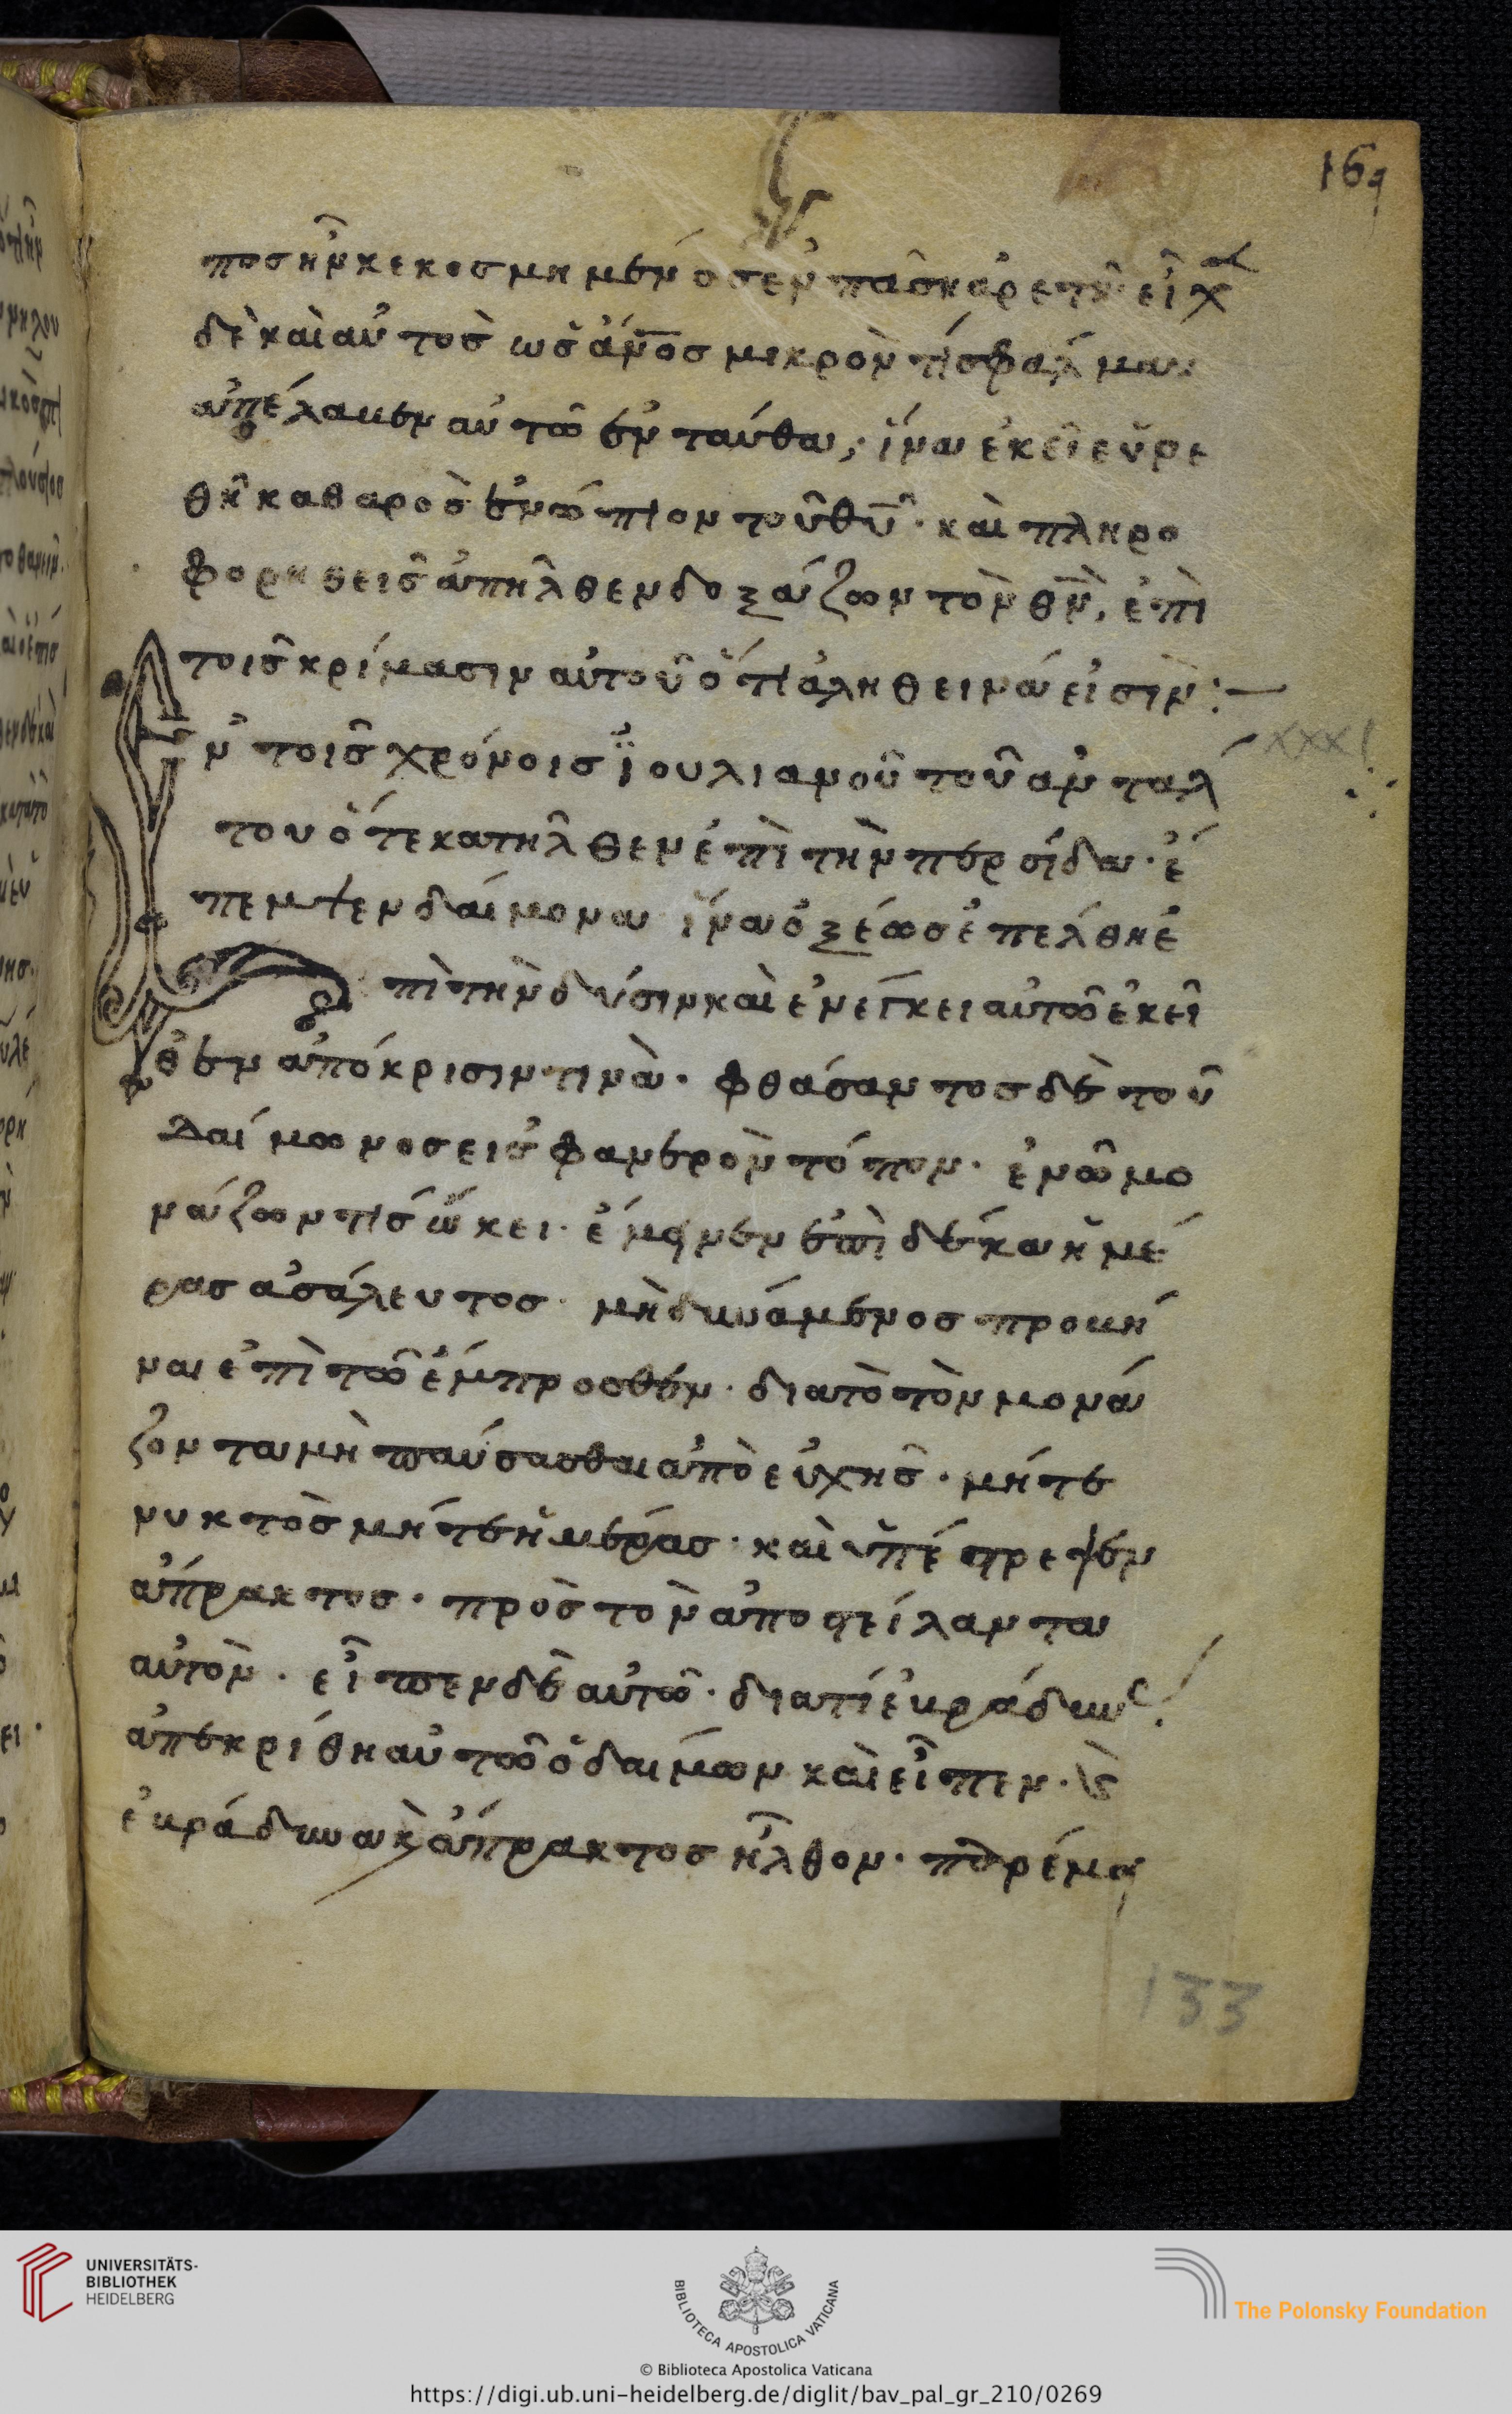 169
ποσ ἦν κεκοσμημένοσ ἐν πάσῃ ἀρετῇ· εἶχ
δὲ καὶ αὐτὸσ ὡσ ἄνοσ μικρόν τι σφάλμα
ἀπέλαβεν αὐτῶ ἐνταύθα, ἵνα ἐκεῖ εὑρε
θῆ καθαρὸσ ἐνώπιον τοῦ θυ· καὶ πληρο
φορηθεὶσ ἀπῆλθεν δοξάζων τὸν θν, ἐπὶ
τοῖσ κρίμασιν αὐτοῦ ὅτι ἀληθεινά εἰσιν:—
Ἐν τοῖσ χρόνοισ ἰουλιανοῦ τοῦ
XXXI
του ὅτε κατῆλθεν ἐπὶ τὴν περσίδα· ἔ
πεμψεν δαίμονα ἵνα ὀξέωσ ἐπέλθη ἐ
πὶ τὴν δύσιν καὶ ἐνέγκει αὐτῶ ἐκεῖ
θεν ἀπόκρισιν τινὰ· φθάσαντοσ δὲ τοῦ
δαίμωνοσ εἰσ φανερὸν τόπον· ἐν ῶ μο
νάζων τίσ ὤκει· ἔμεινεν ἐπὶ δέκα ἡμέ
ρασ ἀσάλευτοσ· μὴ δυνάμενοσ προβῆ
ναι ἐπὶ τῶ ἔμπροσθεν· διὰ τὸ τὸν μονά
ζοντα μὴ παύσασθαι ἀπὸ εὐχῆσ· μήτε
νυκτὸσ μήτε ἡμέρασ· καὶ ὑπέστρεψεν
ἄπρακτοσ· πρὸσ τὸν ἀποστείλαντα
αὐτὸν· εἶπεν δὲ αὐτῶ· διατί ἐβράδυνασ
ἀπεκρίθη αὐτῶ ὁ δαίμων καὶ εἶπεν· κὲ
ἐβράδυνα κὲ ἄπρακτοσ ἦλθον·
133
UNIVERSITÄTS-
BIBLIOTHEK
HEIDELBERG
BIBLIOTECA APOSTOLICA VATICANA
The Polonsky Foundation
© Biblioteca Apostolica Vaticana
https://digi.ub.uni-heidelberg.de/diglit/bav_pal_gr_210/0269